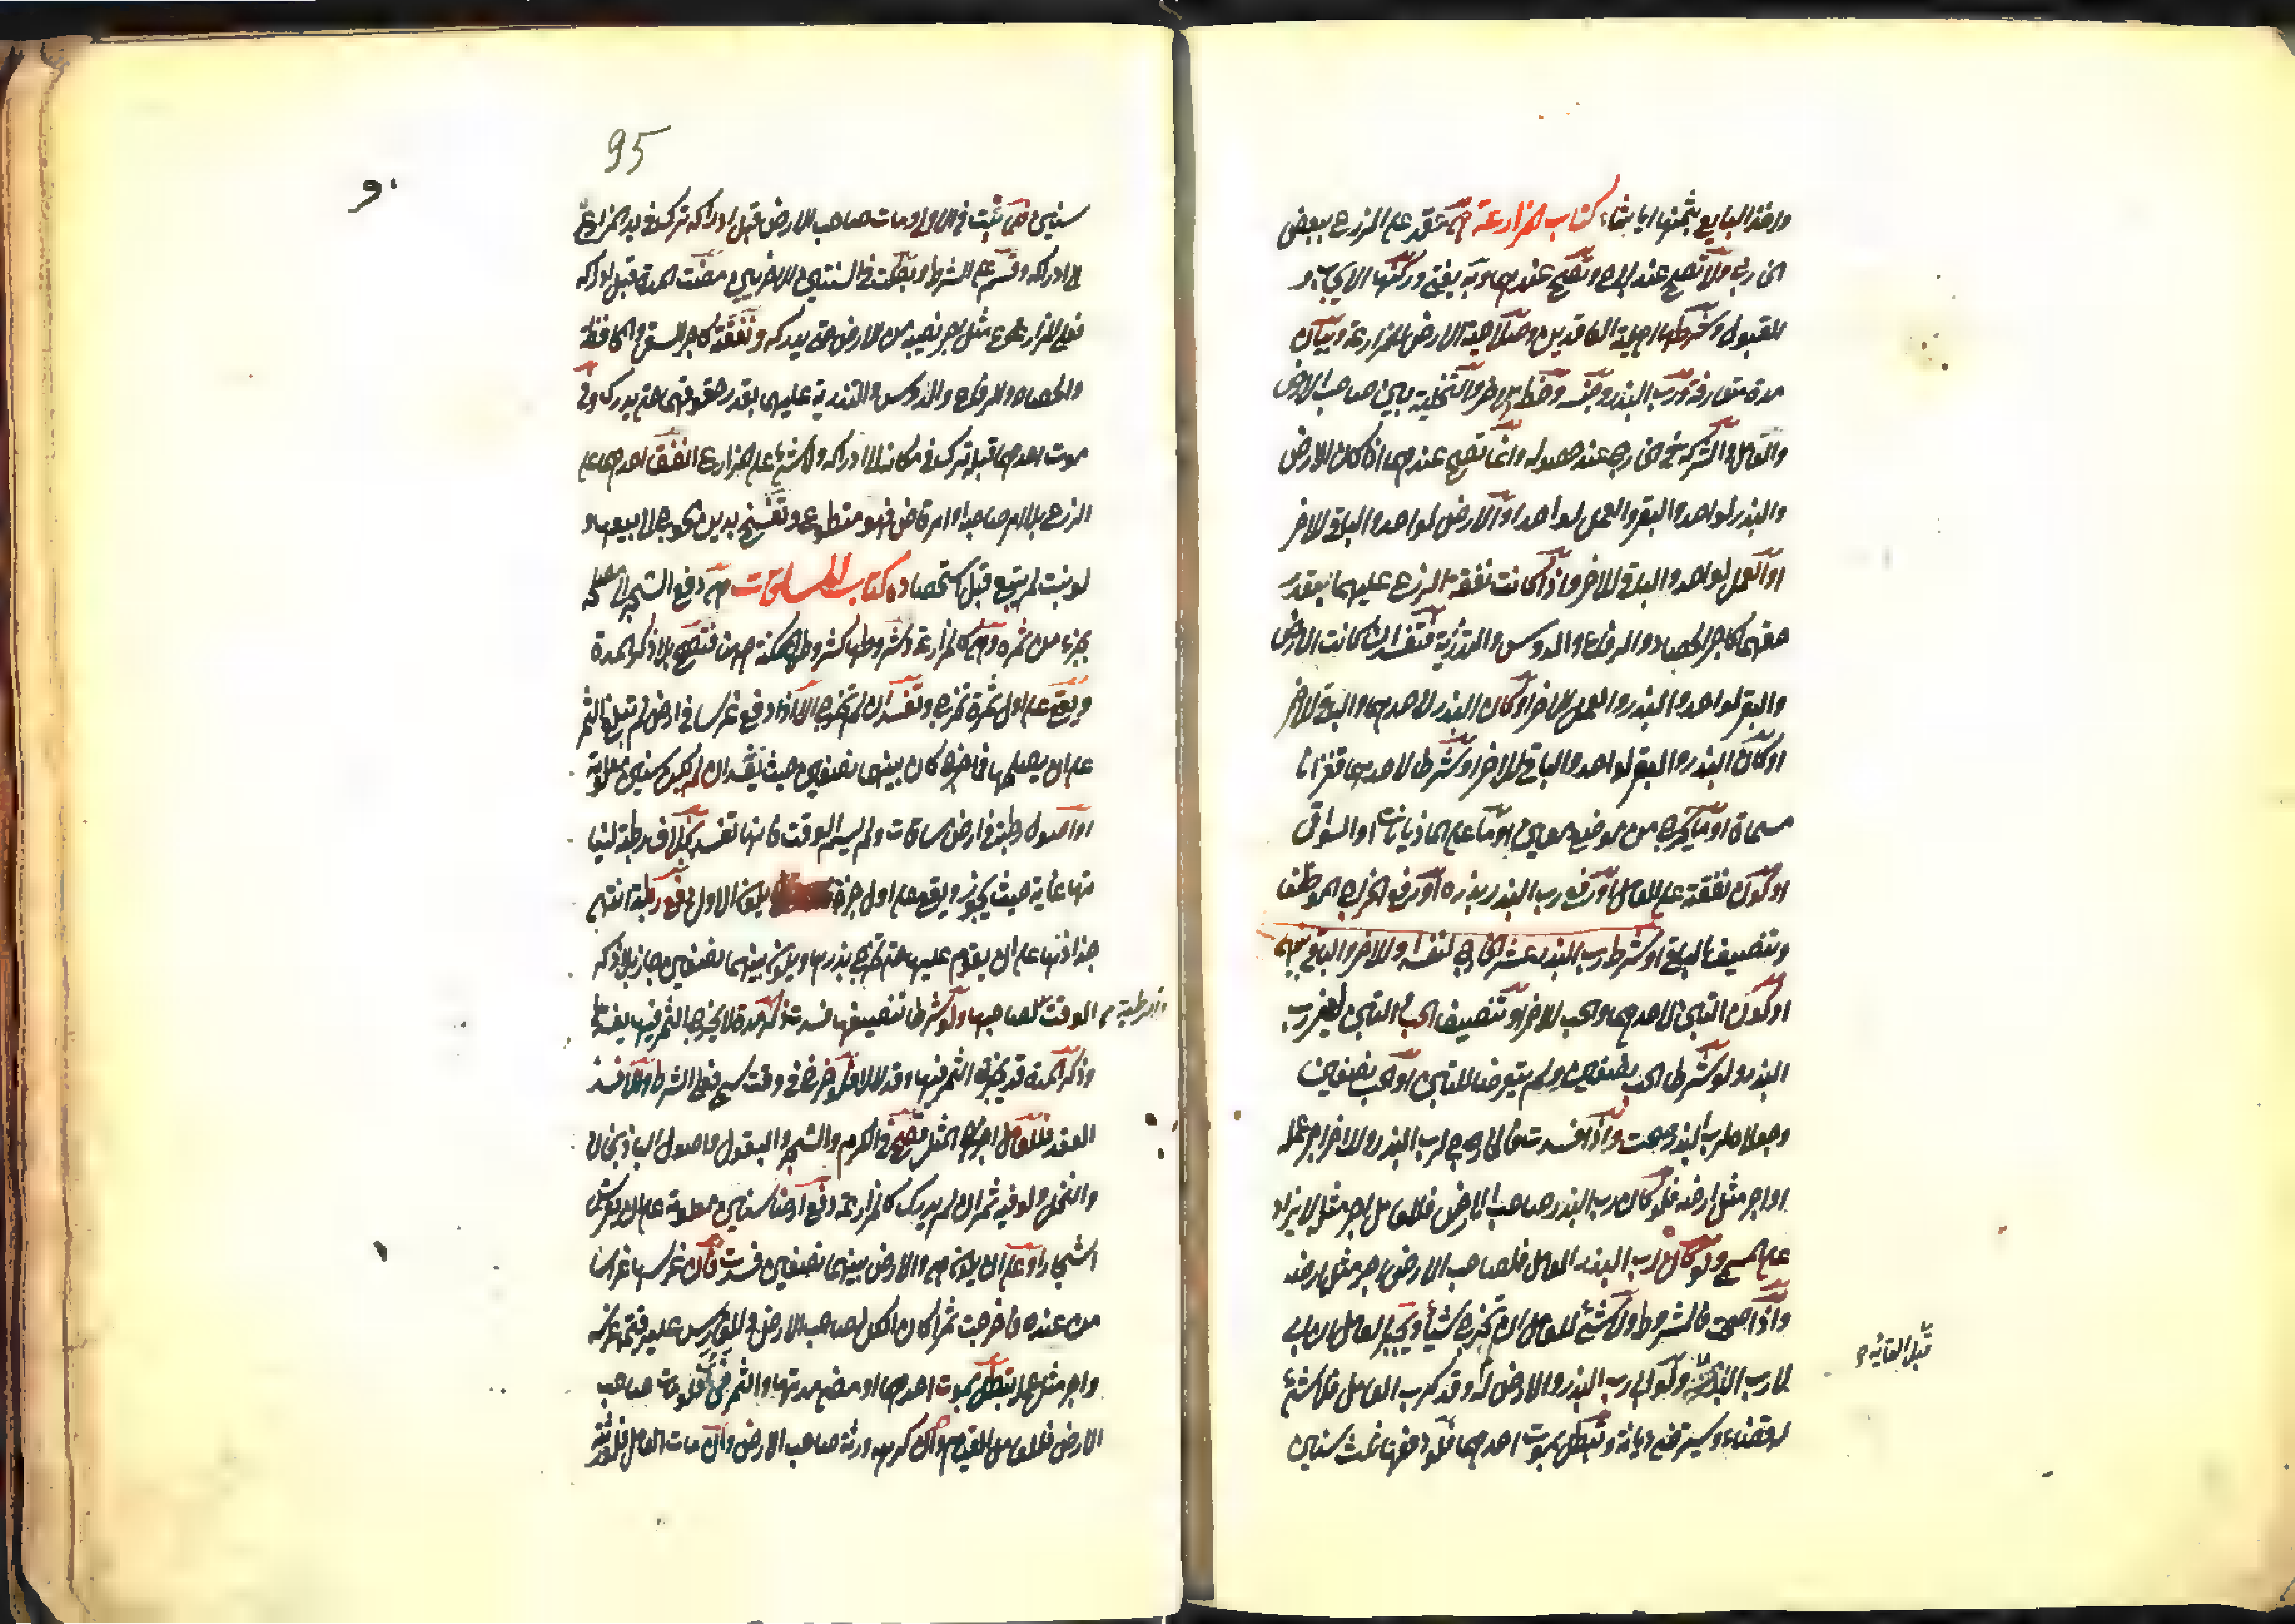 واخذ البايع بثمنها ايا شاء كتاب المزارعة هي عقد على الزرع ببعض
الخارج ولا تصح عند ابى ح وتصح عندهما وبه يفتى وركنها الايجاب و
القبول وشرطها اهلية العاقدين وصلاحية الارض للمزارعة وبيان
مدة متعارفة ورب البذر وجنسه وحظ الاخر والتخلية بين صاحب الارض
والعامل والشركة فى الخارج عند حصوله وانما تصح عندهما اذا كان الارض
والبذر لواحد والبقر والعمل لواحد او الارض لواحد والباقى للاخر
او العمل لواحد والباقى للاخر واذا كانت نفقة الزرع عليهما بقدر
حقهما كاجر الحصاد والرفاع والدوس والتذرية فتفسد ان كانت الارض
والبقر لواحد والبذر والعمل للاخر او كان البذر لاحدهما والباقى للاخر
او كان البذر والبقر لواحد والباقى للاخر او شرط لاحدهما قفزانا
مسماة او ما يخرج من موضع معين او ما على الماذيانات او السواقى
او كون نفقة على العامل او رفع رب البذر بذره او رفع الخراج الموظف
وتنصيف الباقى او شرط رب البذر عشر الخارج لنفسه وللاخر والباقى بينهما
او كون التبن لاحدهما والحب للاخر او تنصيف الحب والتبن لغير رب
البذر ولو شرط الحب نصفين ولم يتعرضا للتبن او الحب نصفين
وجعلا لرب البذر صحت واذا فسدت فالخارج لرب البذر وللاخر اجر عمله
او اجر مثل ارضه فلو كان رب البذر صاحب الارض فللعامل اجر مثله لا يزاد
على المسمى ولو كان رب البذر العامل فلصاحب الارض اجر مثل ارضه
واذا صحت فالمشروط ولا شئ للعامل ان لم تخرج شيأ ويجبر العامل ان ابى
لا رب البذر ولو ابى رب البذر والارض له وقد كرب العامل فلا شئ
له قضاء ويسترضى ديانة وتبطل بموت احدهما فلو دفعها ثلث سنين
قبل القائه
95
سنين فى نبت فى الاولى ومات صاحب الارض قبل ادراكه ترك فى يد المزارع
الى ادراكه وقسم على الشرط وبطلت فى السنتين الاخريين ومضت المدة قبل ادراكه
فعلى المزارع مثل اجر نصيبه من الارض حتى يدركه ونفقة كاجر السقى والمحافظة
والحصاد والرفاع والدوس والتذرية عليهما بقدر حقوقهما حتى يدرك وفى
موت احدهما قبله ترك فى مكانه الى ادراكه ولا شئ على المزارع انفق احدهما على
الزرع بلا امر صاحبه او امر قاض فهو متطوع وتفسخ بدين محوج الى بيعها و
لو نبت لم يبع قبل استحصاده كتاب المساقات هى دفع الشجر الى مصلحه
بجزء من ثمره وهى كالمزارعة وشروطها كشروطها لكنه هنا فتصح بلا ذكر المدة
ويقع على اول ثمرة تخرج وتفسد ان لم تخرج الا اذا دفع غرسا فى ارض لم تبلغ الثمر
على ان يصلحها فما خرج كان بينهما نصفين حيث تفسد ان لم يذكر سنين معلومة
او اصول رطبة فى ارض مساقات ولم يسم الوقت فانها تفسد بخلاف رطبة ليس
منها غاية حيث يجوز ويقع على اول جزة يكون الاول دفع رطبة انتهى
جذاذها على ان يقوم عليها حتى يخرج بذرها ويكون بينهما نصفين جاز بلا ذكر
والرطبة الوقت لصاحبها ولو شرطا تنصيفها فسدت وذكر مدة لا يخرج الثمر فيها يفسدها
وذكر مدة قد يخرج الثمر فيها وقد لا فلو خرج فى وقت سمى فعلى الشرط والا فسد
العقد فللعامل اجر المثل تصح فى الكرم والشجر والبقول واصول الباذنجان
والنخل ولو فيه ثمر ان لم يدرك كالمزارعة دفع ارضا سنين معلومة على ان يغرس
اشجارا وعلى ان يكون هى والارض بينهما نصفين فسدت فان غرسها غراسا
من عنده واخرجت ثمرا كان الكل لصاحب الارض وللغارس عليه قيمة غرسه
واجر مثل عمله تبطل بموت احدهما او مضى مدتها والثمر نى فلو مات صاحب
الارض فللعامل القيام وان كره ورثة صاحب الارض وان مات العامل فلورثته